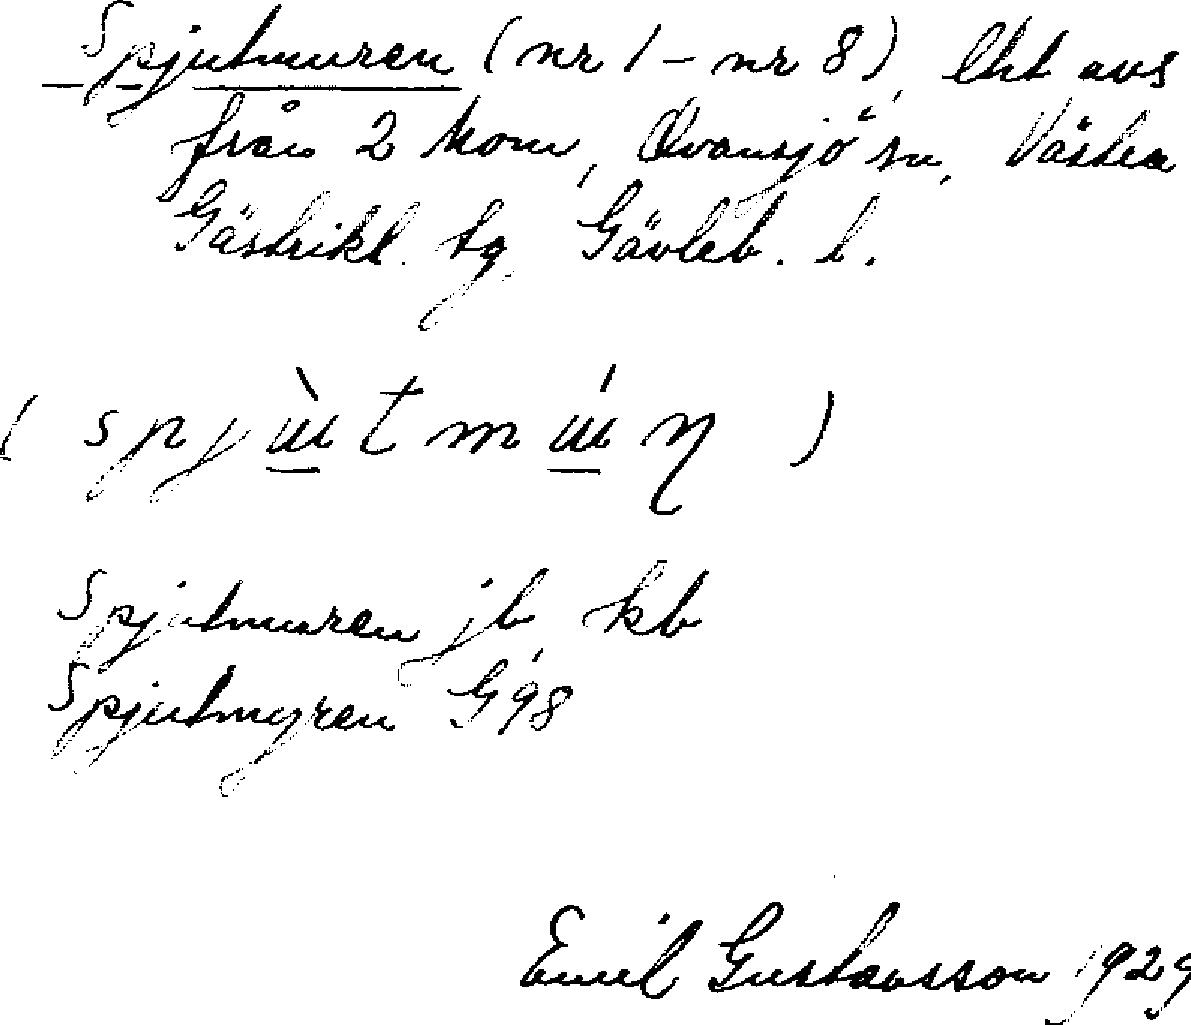 Spjutmuren (nr 1 – nr 8), lht avs
från 2 Mom, Ovansjö sn, Västra
Gästrikl. tg, Gävleb. l.
( s p j ɯ̀ t m ɯ́ η )
Spjutmuren jb, kb
Spjutmyren G '98
Emil Gustavsson 1929